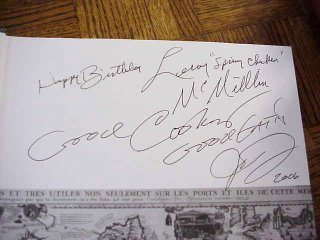 Happy Birthday Leroy "Spring Chicken"
McMillin
Good Cookin
Good Eatin
2006
ES ET TRES UTILES NON SEULEMENT SUR LES PORTS ET ILES DE CETTE MER